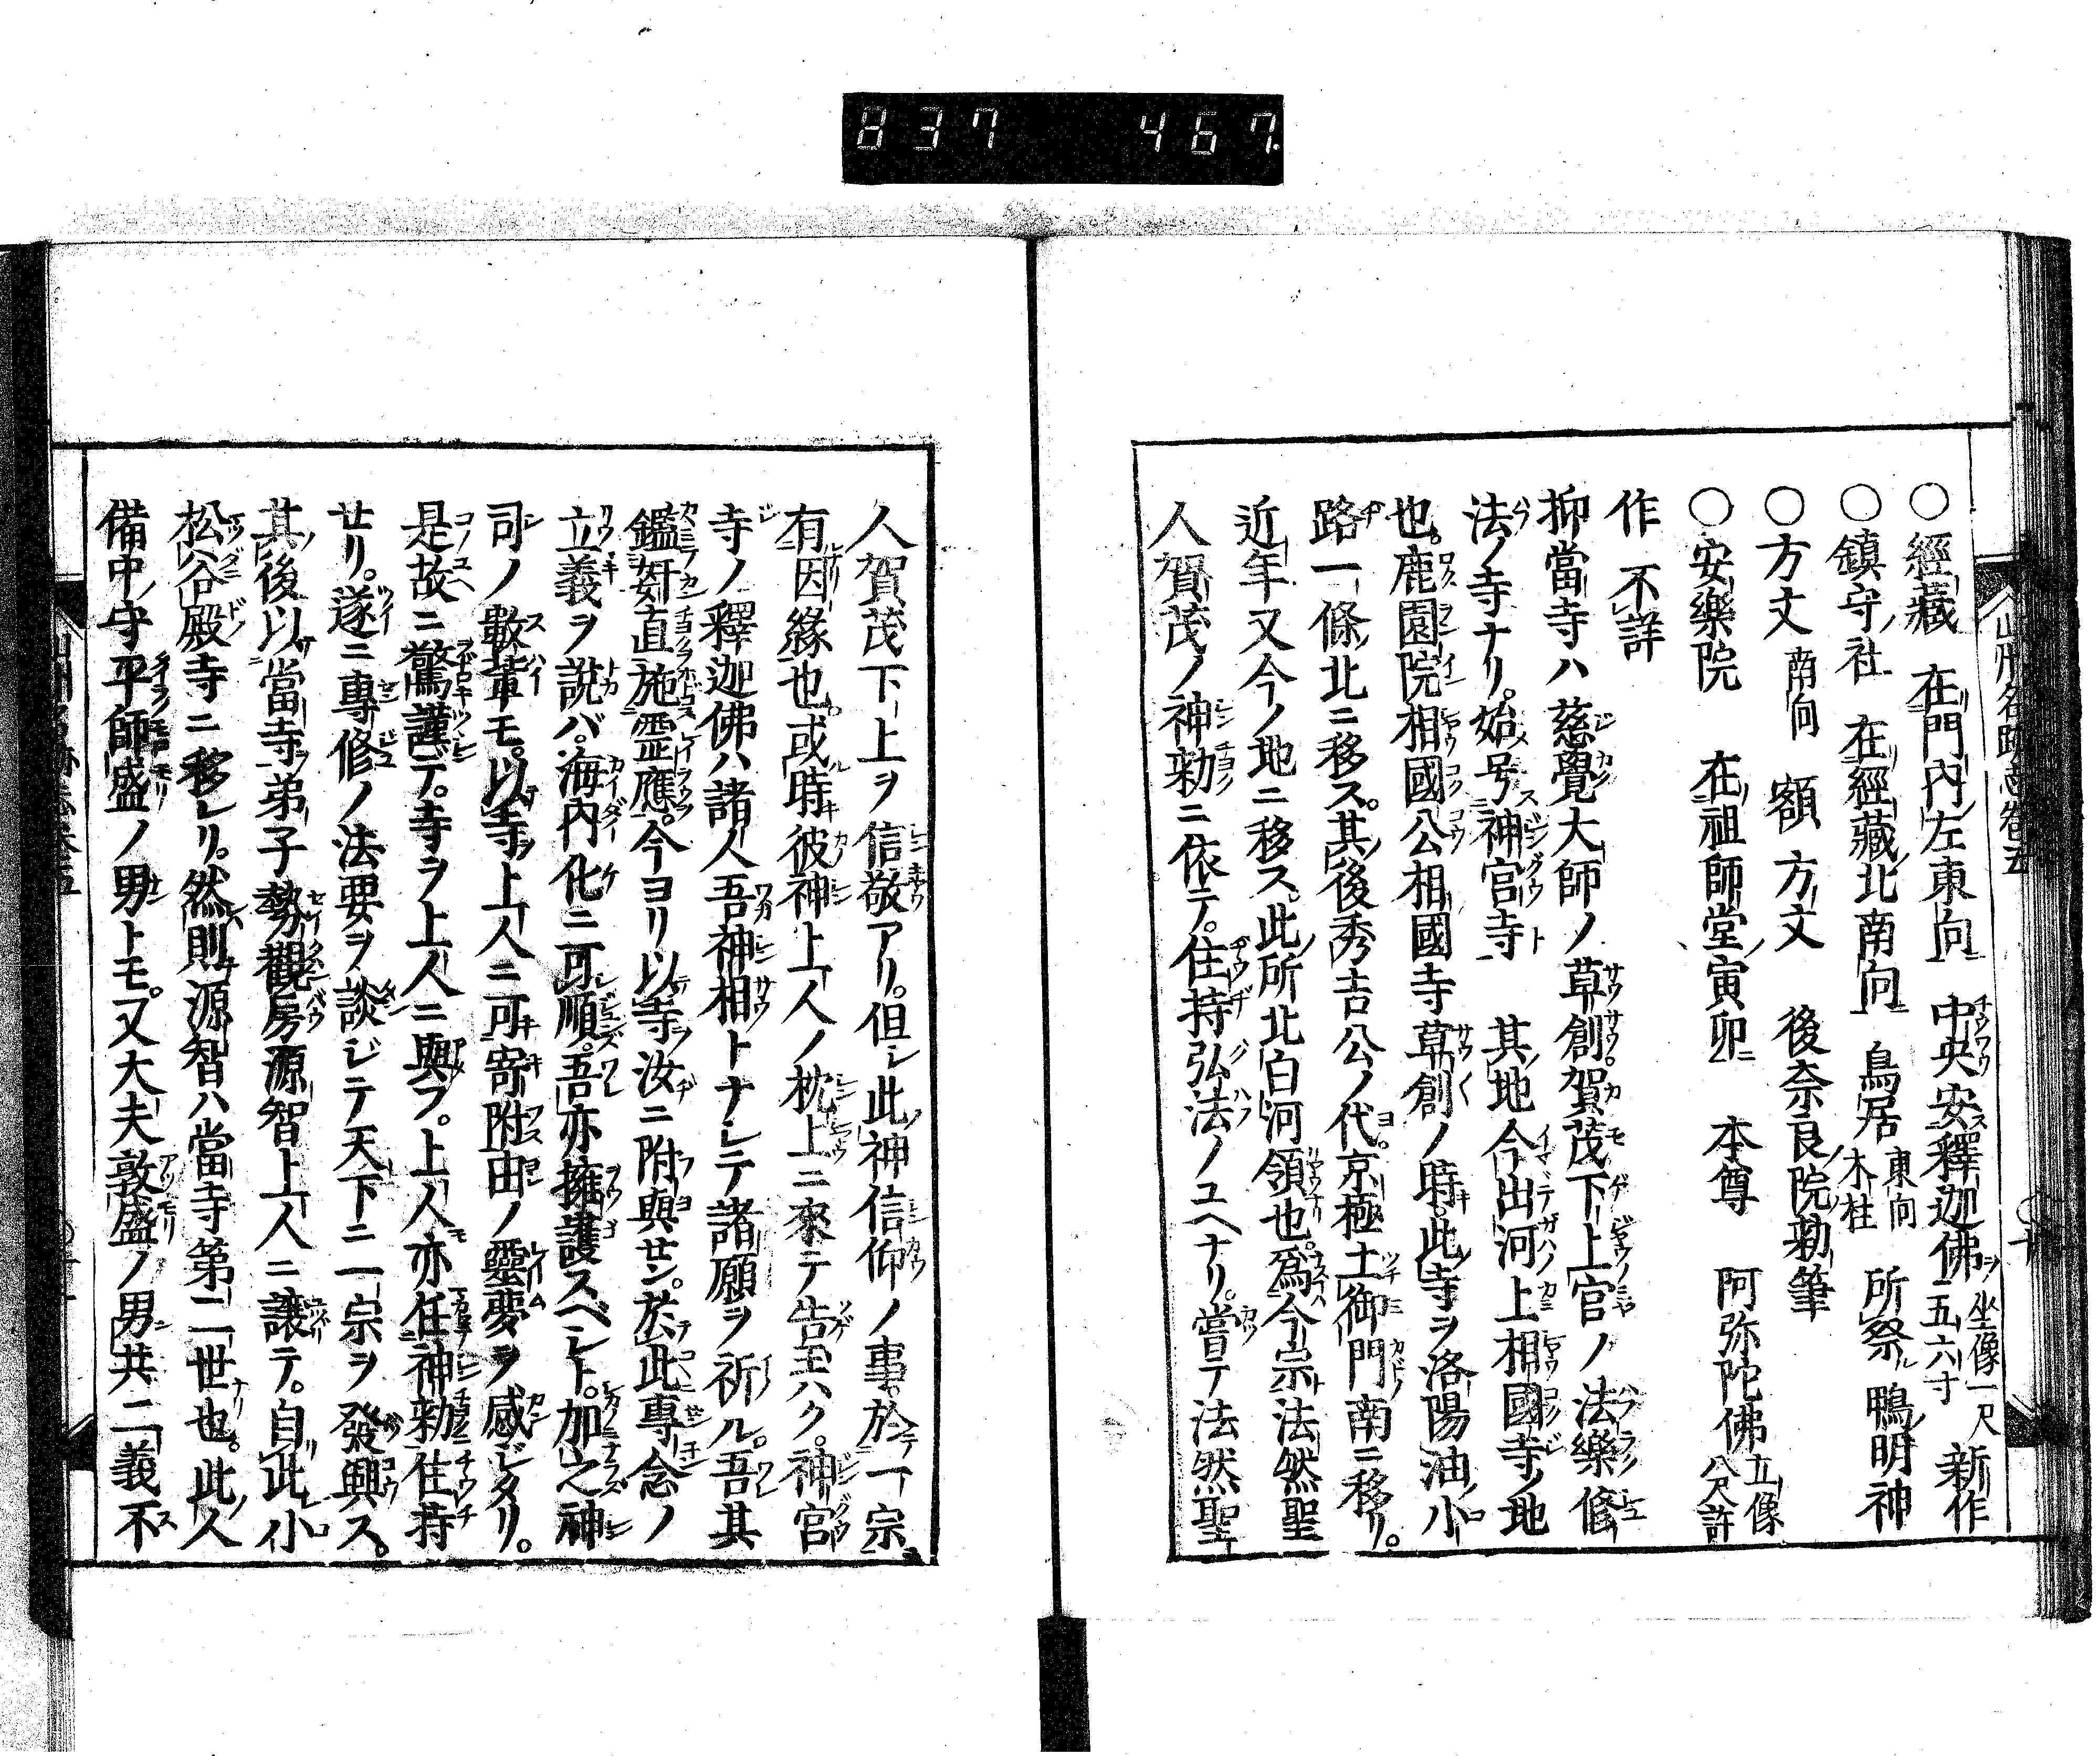 837 467
○經藏 在門內左東向 中央安釋迦佛 坐像一尺五六寸 新作
○鎮守社 在經藏北南向 鳥居 東向木柱 所祭鴨明神
○方丈 南向 額 方丈 後奈良院勅筆
○安樂院 在祖師堂寅卯 本尊 阿弥陀佛 立像八尺許
作不詳
抑當寺ハ慈覺大師ノ草創。賀茂下上官ノ法樂修
法ノ寺ナリ。始号神宮寺 其地今出河上相國寺ノ地
也。鹿園院相國公相國寺草創ノ時。此寺ヲ洛陽油小
路一條北ニ移ス。其後秀吉公ノ代。京極土御門南ニ移リ。
近年又今ノ地ニ移ス。此所北白河領也。爲今宗法然聖
人賀茂ノ神勅ニ依テ。住持弘法ノユヘナリ。嘗テ法然聖
人賀茂下上ヲ信敬アリ。但シ此神信仰ノ事。於一宗
有因緣也。或時彼神上人ノ枕上ニ來テ告玉ハク。神宮
寺ノ釋迦佛ハ諸人吾神相トナシテ諸願ヲ祈ル。吾其
鑑奸直施霊應。今ヨリ以寺汝ニ附與セン。於此專念ノ
立義ヲ說バ。海內化ニ可順。吾亦擁護スベシト。加之神
司ノ數輩モ。以寺上人ニ可寄附由ノ靈夢ヲ感ジタリ。
是故ニ驚謹テ。寺ヲ上人ニ與フ。上人亦任神勅住持
せリ。遂ニ專修ノ法要ヲ談ジテ天下ニ一宗ヲ發興ス。
其後以當寺弟子勢觀房源智上人ニ讓テ。自此小
松谷殿寺ニ移レリ。然則源智ハ當寺第二世也。此人
備中守平師盛ノ男トモ。又大夫敦盛ノ男共二義不